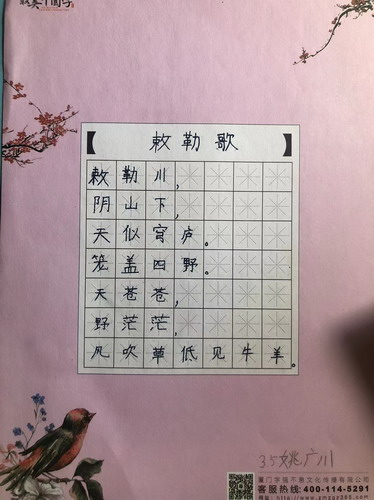 【敕勒歌】
敕勒川,
阴山下,
天似穹庐。
笼盖四野。
天苍苍,
野茫茫,
风吹草低见牛羊。
3.5 姚广川
厦门字强不息文化传播有限公司
客服热线:400-114-5291